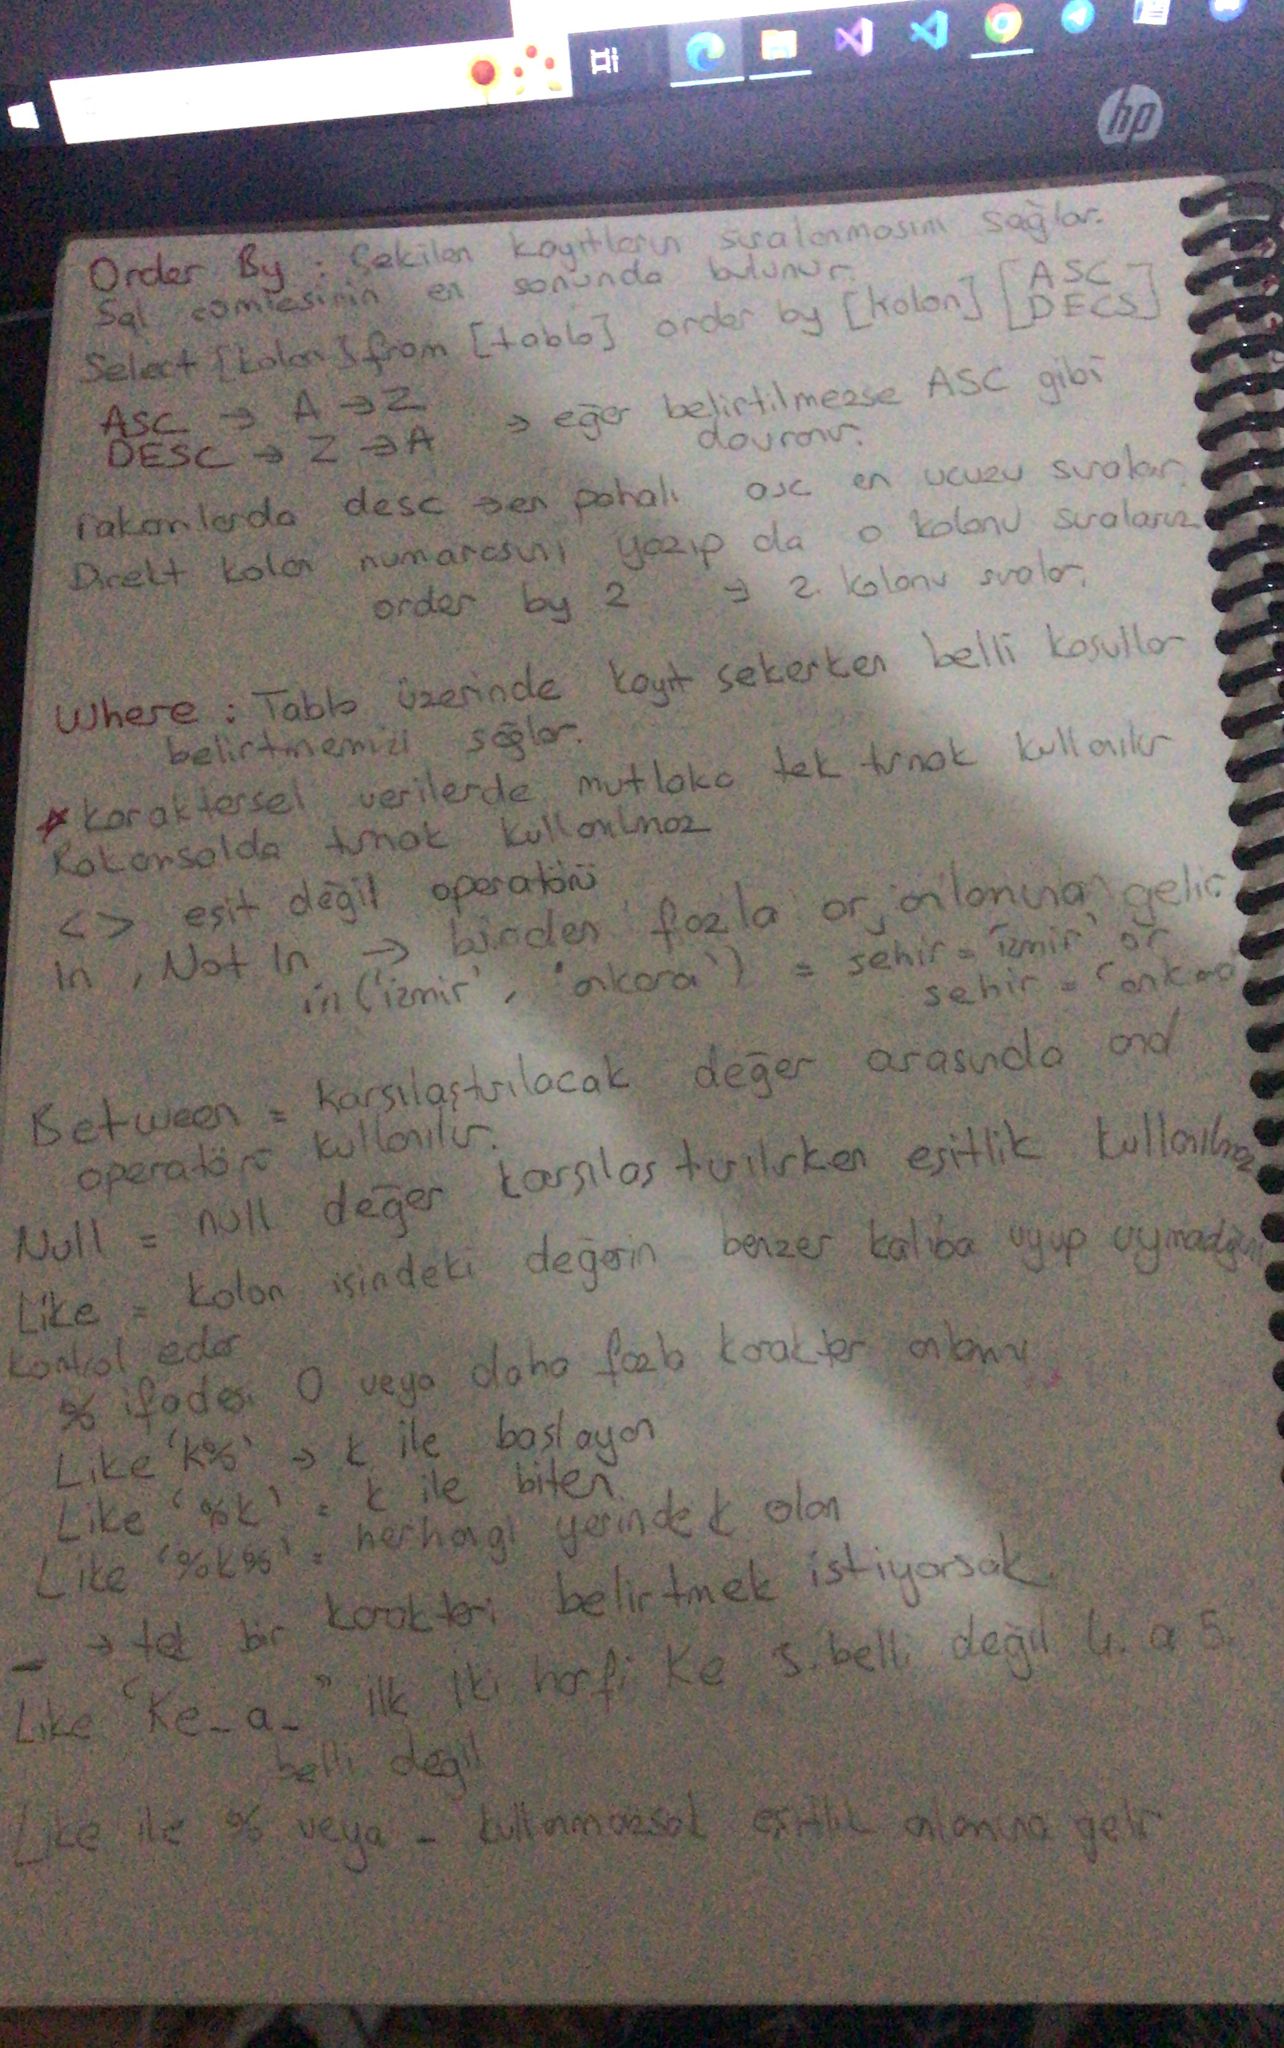 hp
Order By : Çekilen kayıtların sıralanmasını sağlar.
Sql cümlesinin en sonunda bulunur.
Select [kolon] from [tablo] order by [kolon] [ASC
DECS]
ASC → A → Z
DESC → Z → A → eğer belirtilmezse ASC gibi
davranır.
rakamlarda desc → en pahalı asc en ucuzu sıralar.
Direkt kolon numarasını yazıp da o kolonu sıralarız
order by 2 → 2. kolonu sıralar.
Where : Tablo üzerinde kayıt çekerken belli koşullar
belirtmemizi sağlar.
* Karaktersel verilerde mutlaka tek tırnak kullanılır
Rakamsalda tırnak kullanılmaz
<> eşit değil operatörü
In , Not In → birden fazla or anlamına gelir.
in ('izmir', 'ankara') = sehir = 'izmir' or
sehir = 'ankara
Between = karşılaştırılacak değer arasında and
operatörü kullanılır.
Null = null değer karşılaştırılırken eşitlik kullanılmaz
Like = kolon içindeki değerin benzer kalıba uyup uymadığını
kontrol eder
% ifadesi 0 veya daha fazla karakter anlamı
Like 'k%' → k ile başlayan
Like '%k' = k ile biten
Like '%k%' = herhangi yerinde k olan
_ → tek bir karakteri belirtmek istiyorsak
Like "Ke_a_" ilk iki harfi Ke 3. belli değil 4. a 5.
belli değil
Like ile % veya _ kullanmazsak eşitlik anlamına gelir